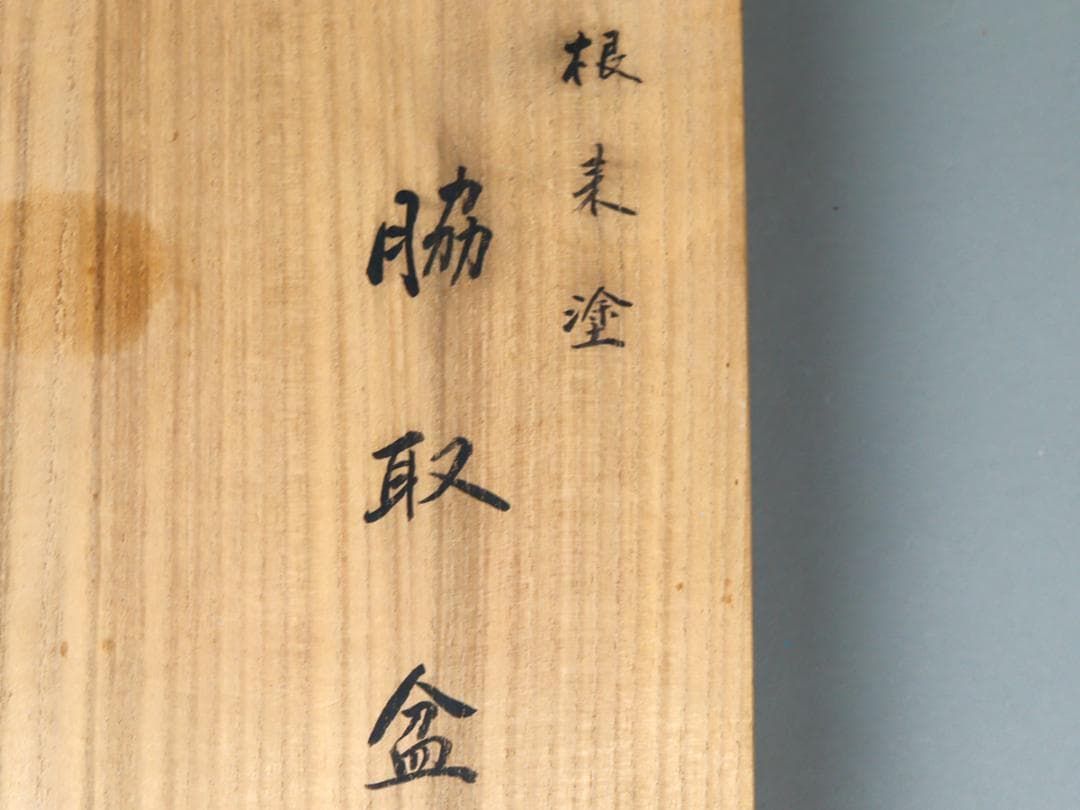 根来塗
脇取盆